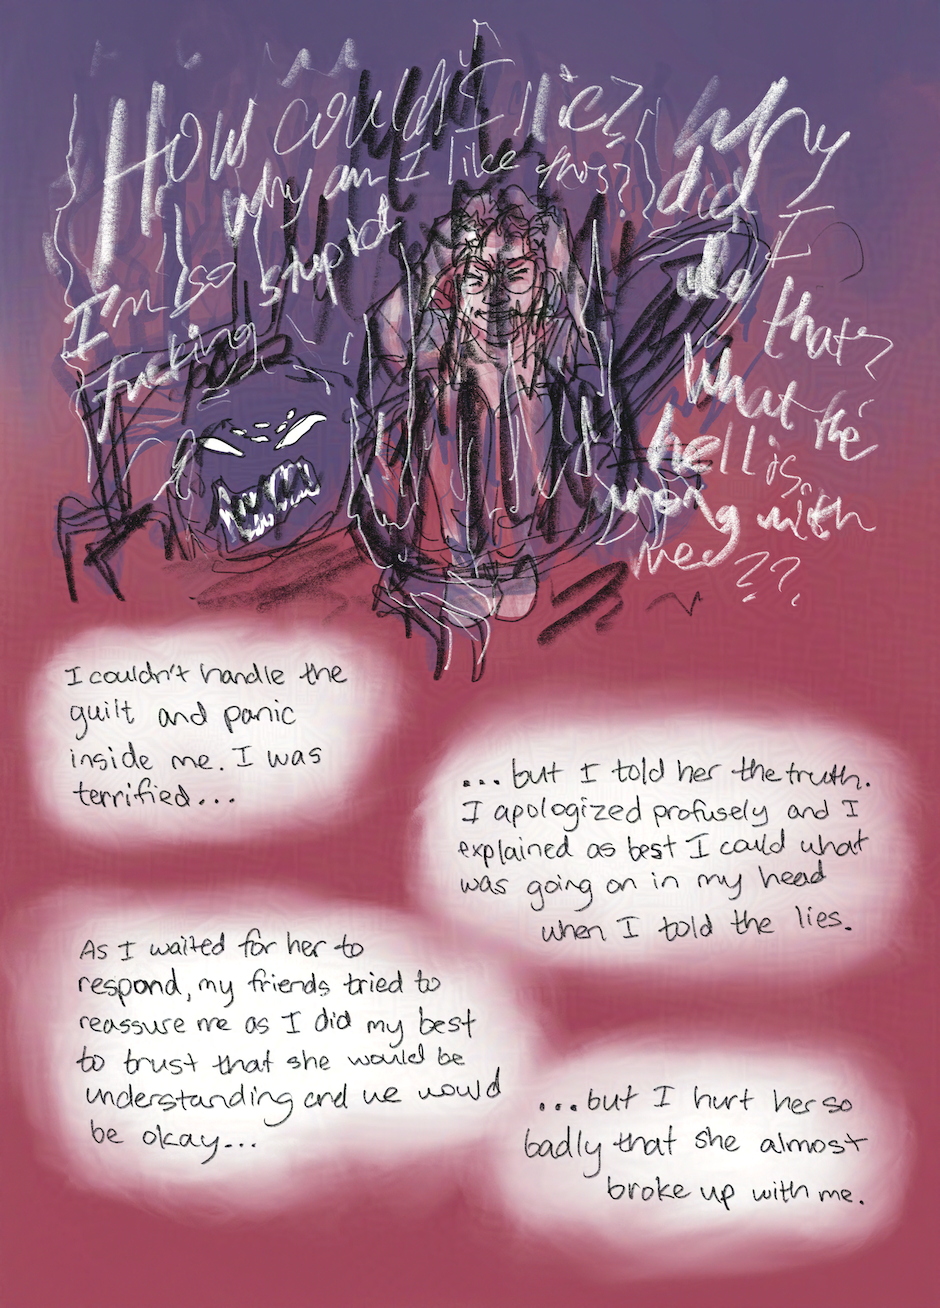 How could I lie?
Why am I like this?
I'm so
stupid
fucking
Why
did I
do
that?
What the
hell is
wrong with
me??
I couldn't handle the
guilt and panic
inside me. I was
terrified...
...but I told her the truth.
I apologized profusely and I
explained as best I could what
was going on in my head
when I told the lies.
As I waited for her to
respond, my friends tried to
reassure me as I did my best
to trust that she would be
understanding and we would
be okay...
...but I hurt her so
badly that she almost
broke up with me.